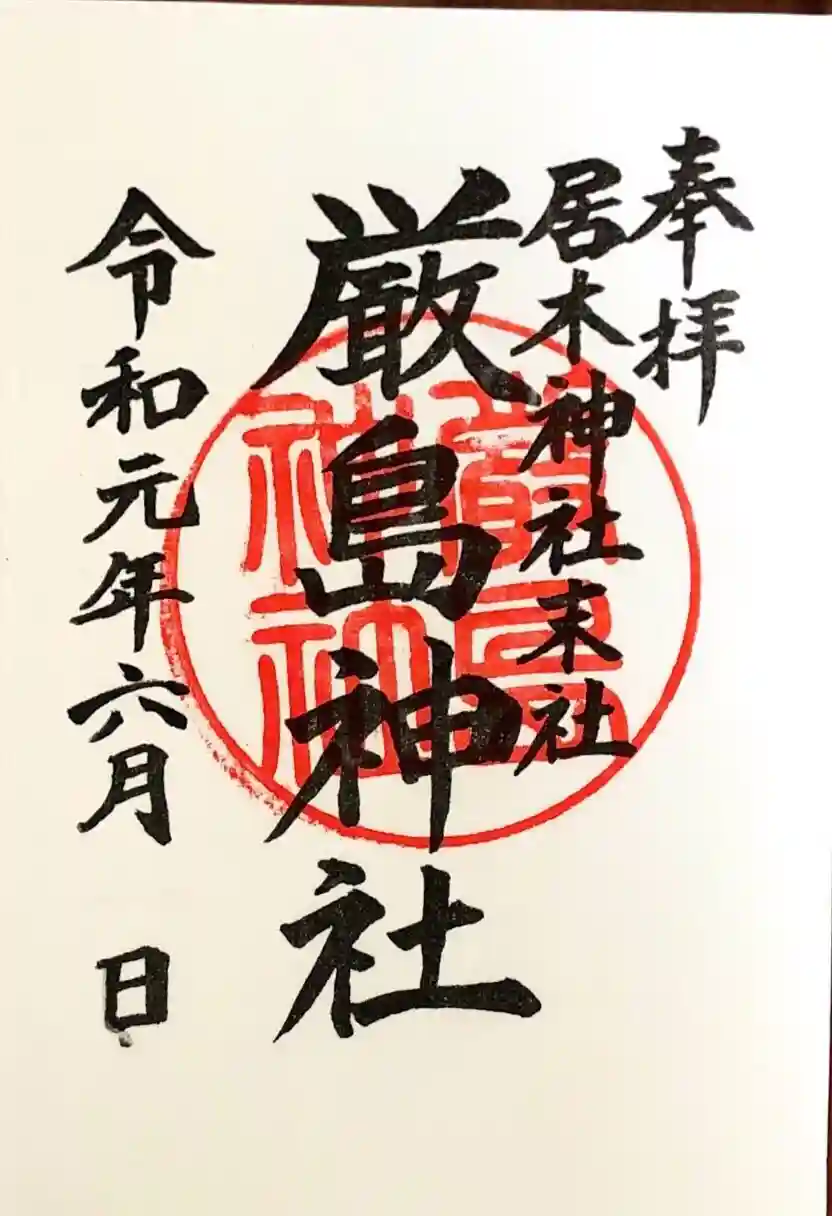 奉拝
居木神社末社
厳島神社
令和元年六月 日
嚴島
神社